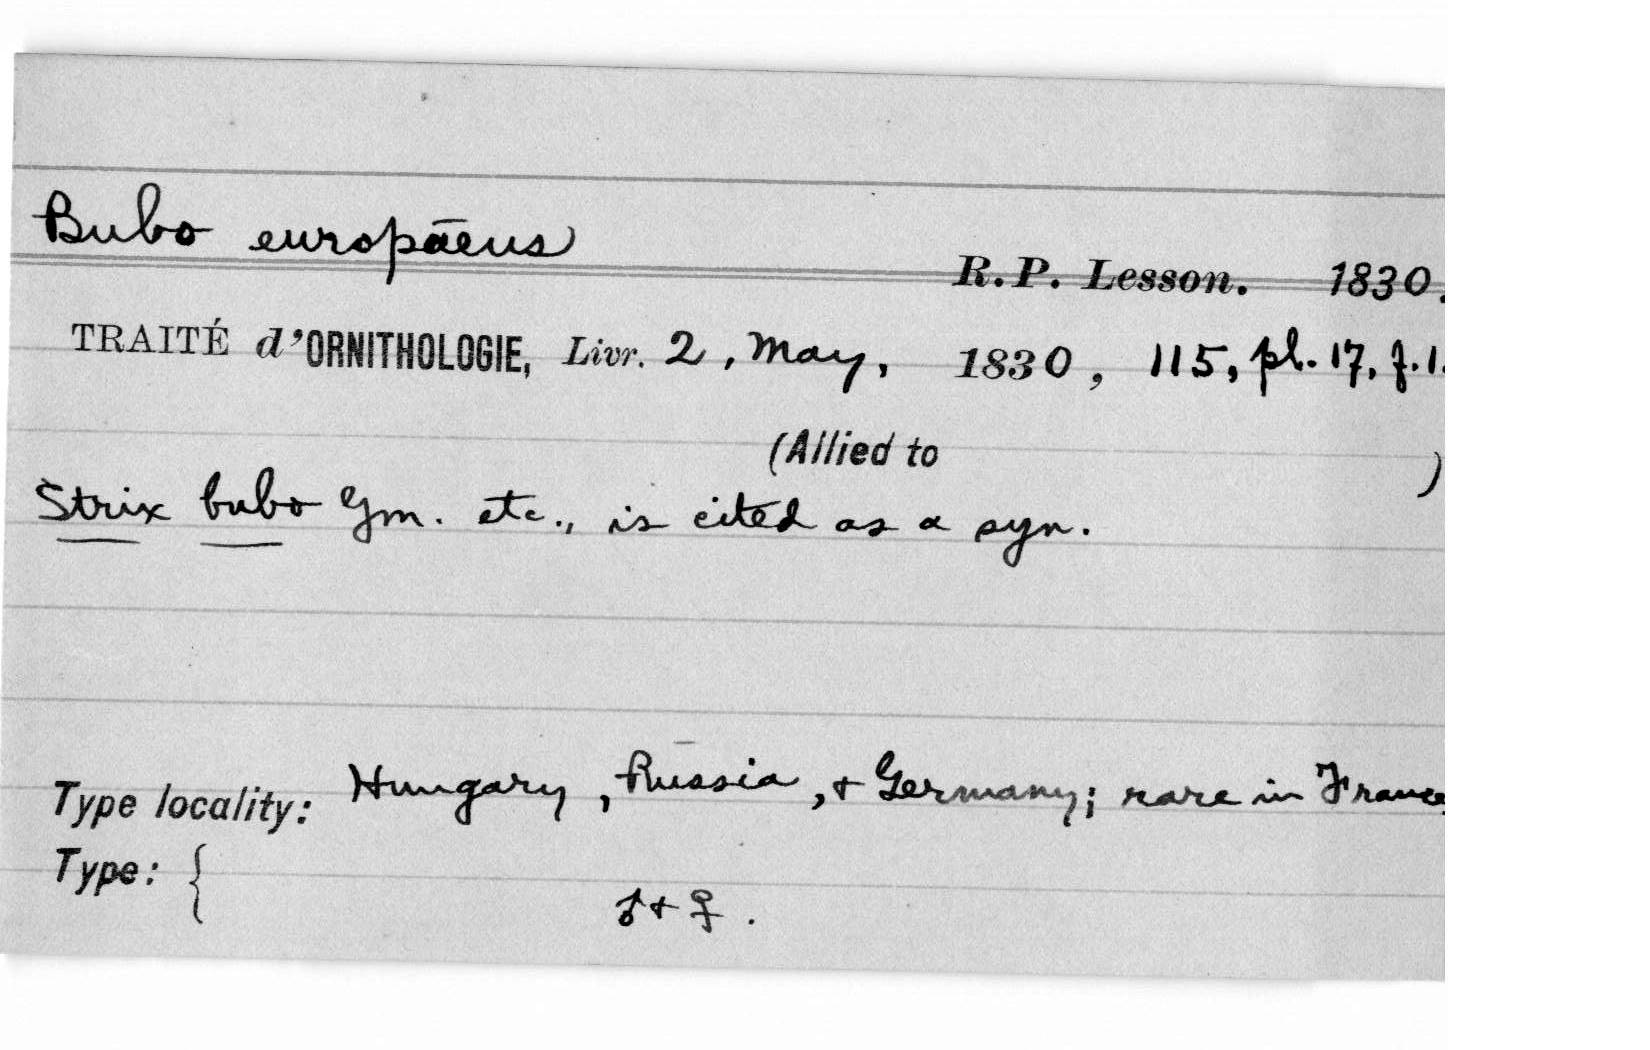 Bubo europāeus
R.P. Lesson. 1830.
TRAITÉ d'ORNITHOLOGIE, Livr. 2, May, 1830, 115, pl. 17, f.1.
(Allied to )
Strix bubo Gm. etc., is cited as a syn.
Type locality: Hungary, Russia, + Germany; rare in France
Type: {
♂ + ♀.